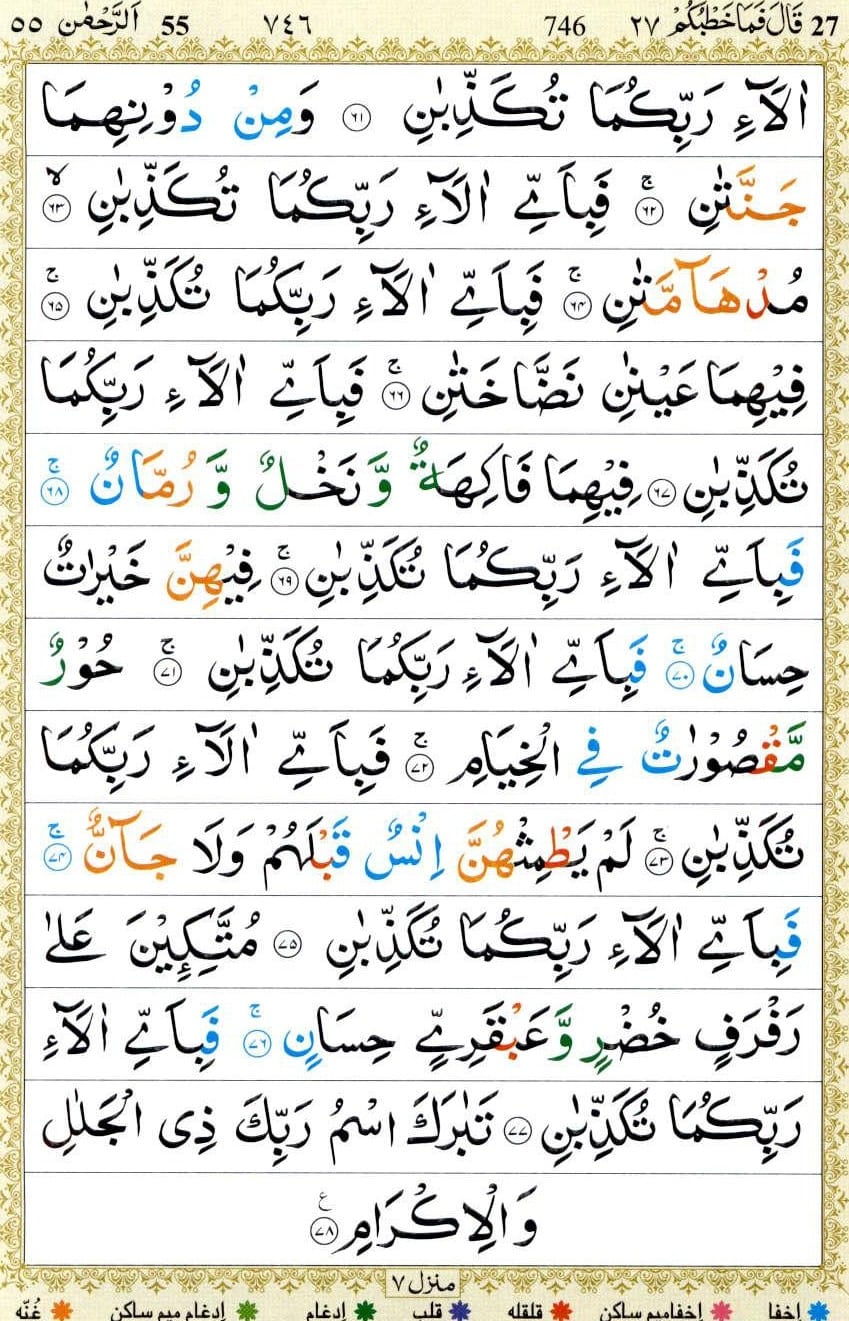 27 قَالَ فَمَا خَطْبُكُمْ ٢٧ 746 ٧٤٦ 55 اَلرَّحْمٰن ٥٥
اٰلَآءِ رَبِّكُمَا تُكَذِّبٰنِ ﴿۶۱﴾ وَمِنْ دُوْنِهِمَا
جَنَّتٰنِ ۚ﴿۶۲﴾ فَبِاَىِّ اٰلَآءِ رَبِّكُمَا تُكَذِّبٰنِ ۙ﴿۶۳﴾
مُدْهَآمَّتٰنِ ۚ﴿۶۴﴾ فَبِاَىِّ اٰلَآءِ رَبِّكُمَا تُكَذِّبٰنِ ۚ﴿۶۵﴾
فِيْهِمَا عَيْنٰنِ نَضَّاخَتٰنِ ۚ﴿۶۶﴾ فَبِاَىِّ اٰلَآءِ رَبِّكُمَا
تُكَذِّبٰنِ ﴿۶۷﴾ فِيْهِمَا فَاكِهَةٌ وَّنَخْلٌ وَّرُمَّانٌ ۚ﴿۶۸﴾
فَبِاَىِّ اٰلَآءِ رَبِّكُمَا تُكَذِّبٰنِ ۚ﴿۶۹﴾ فِيْهِنَّ خَيْرٰتٌ
حِسَانٌ ۚ﴿۷۰﴾ فَبِاَىِّ اٰلَآءِ رَبِّكُمَا تُكَذِّبٰنِ ۚ﴿۷۱﴾ حُوْرٌ
مَّقْصُوْرٰتٌ فِى الْخِيَامِ ۚ﴿۷۲﴾ فَبِاَىِّ اٰلَآءِ رَبِّكُمَا
تُكَذِّبٰنِ ۚ﴿۷۳﴾ لَمْ يَطْمِثْهُنَّ اِنْسٌ قَبْلَهُمْ وَلَا جَآنٌّ ۚ﴿۷۴﴾
فَبِاَىِّ اٰلَآءِ رَبِّكُمَا تُكَذِّبٰنِ ﴿۷۵﴾ مُتَّكِـِٕيْنَ عَلٰى
رَفْرَفٍ خُضْرٍ وَّعَبْقَرِىٍّ حِسَانٍ ۚ﴿۷۶﴾ فَبِاَىِّ اٰلَآءِ
رَبِّكُمَا تُكَذِّبٰنِ ﴿۷۷﴾ تَبٰرَكَ اسْمُ رَبِّكَ ذِى الْجَلٰلِ
وَالْاِكْرَامِ ﴿۷۸﴾ ع
منزل ۷
اِخفا اِخفامیم ساکن قلقله قلب اِدغام اِدغام میم ساکن غُنّه